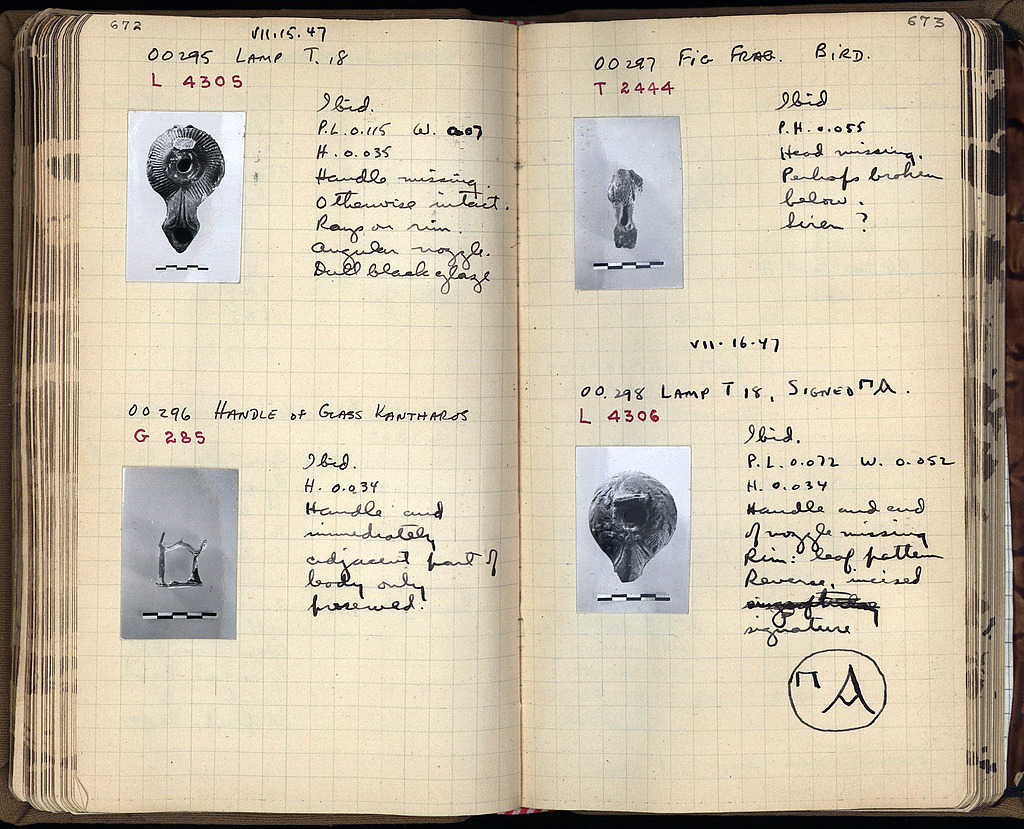 672
VII.15.47
OO 295 LAMP T. 18
L 4305
Ibid.
P.L. 0.115 W. 0.07
H. 0.035
Handle missing.
Otherwise intact.
Rays on rim.
Angular nozzle.
Dull black glaze
OO 296 HANDLE OF GLASS KANTHAROS
G 285
Ibid.
H. 0.034
Handle and
immediately
adjacent part of
body only
preserved.
673
OO 297 FIG FRAG. BIRD.
T 2444
Ibid
P.H. 0.055
Head missing.
Perhaps broken
below.
Siren ?
VII.16.47
OO.298 LAMP T 18, SIGNED ΠΑ.
L 4306
Ibid.
P.L. 0.072 W. 0.052
H. 0.034
Handle and end
of nozzle missing
Rim: leaf pattern
Reverse, incised
signature
ΠΑ